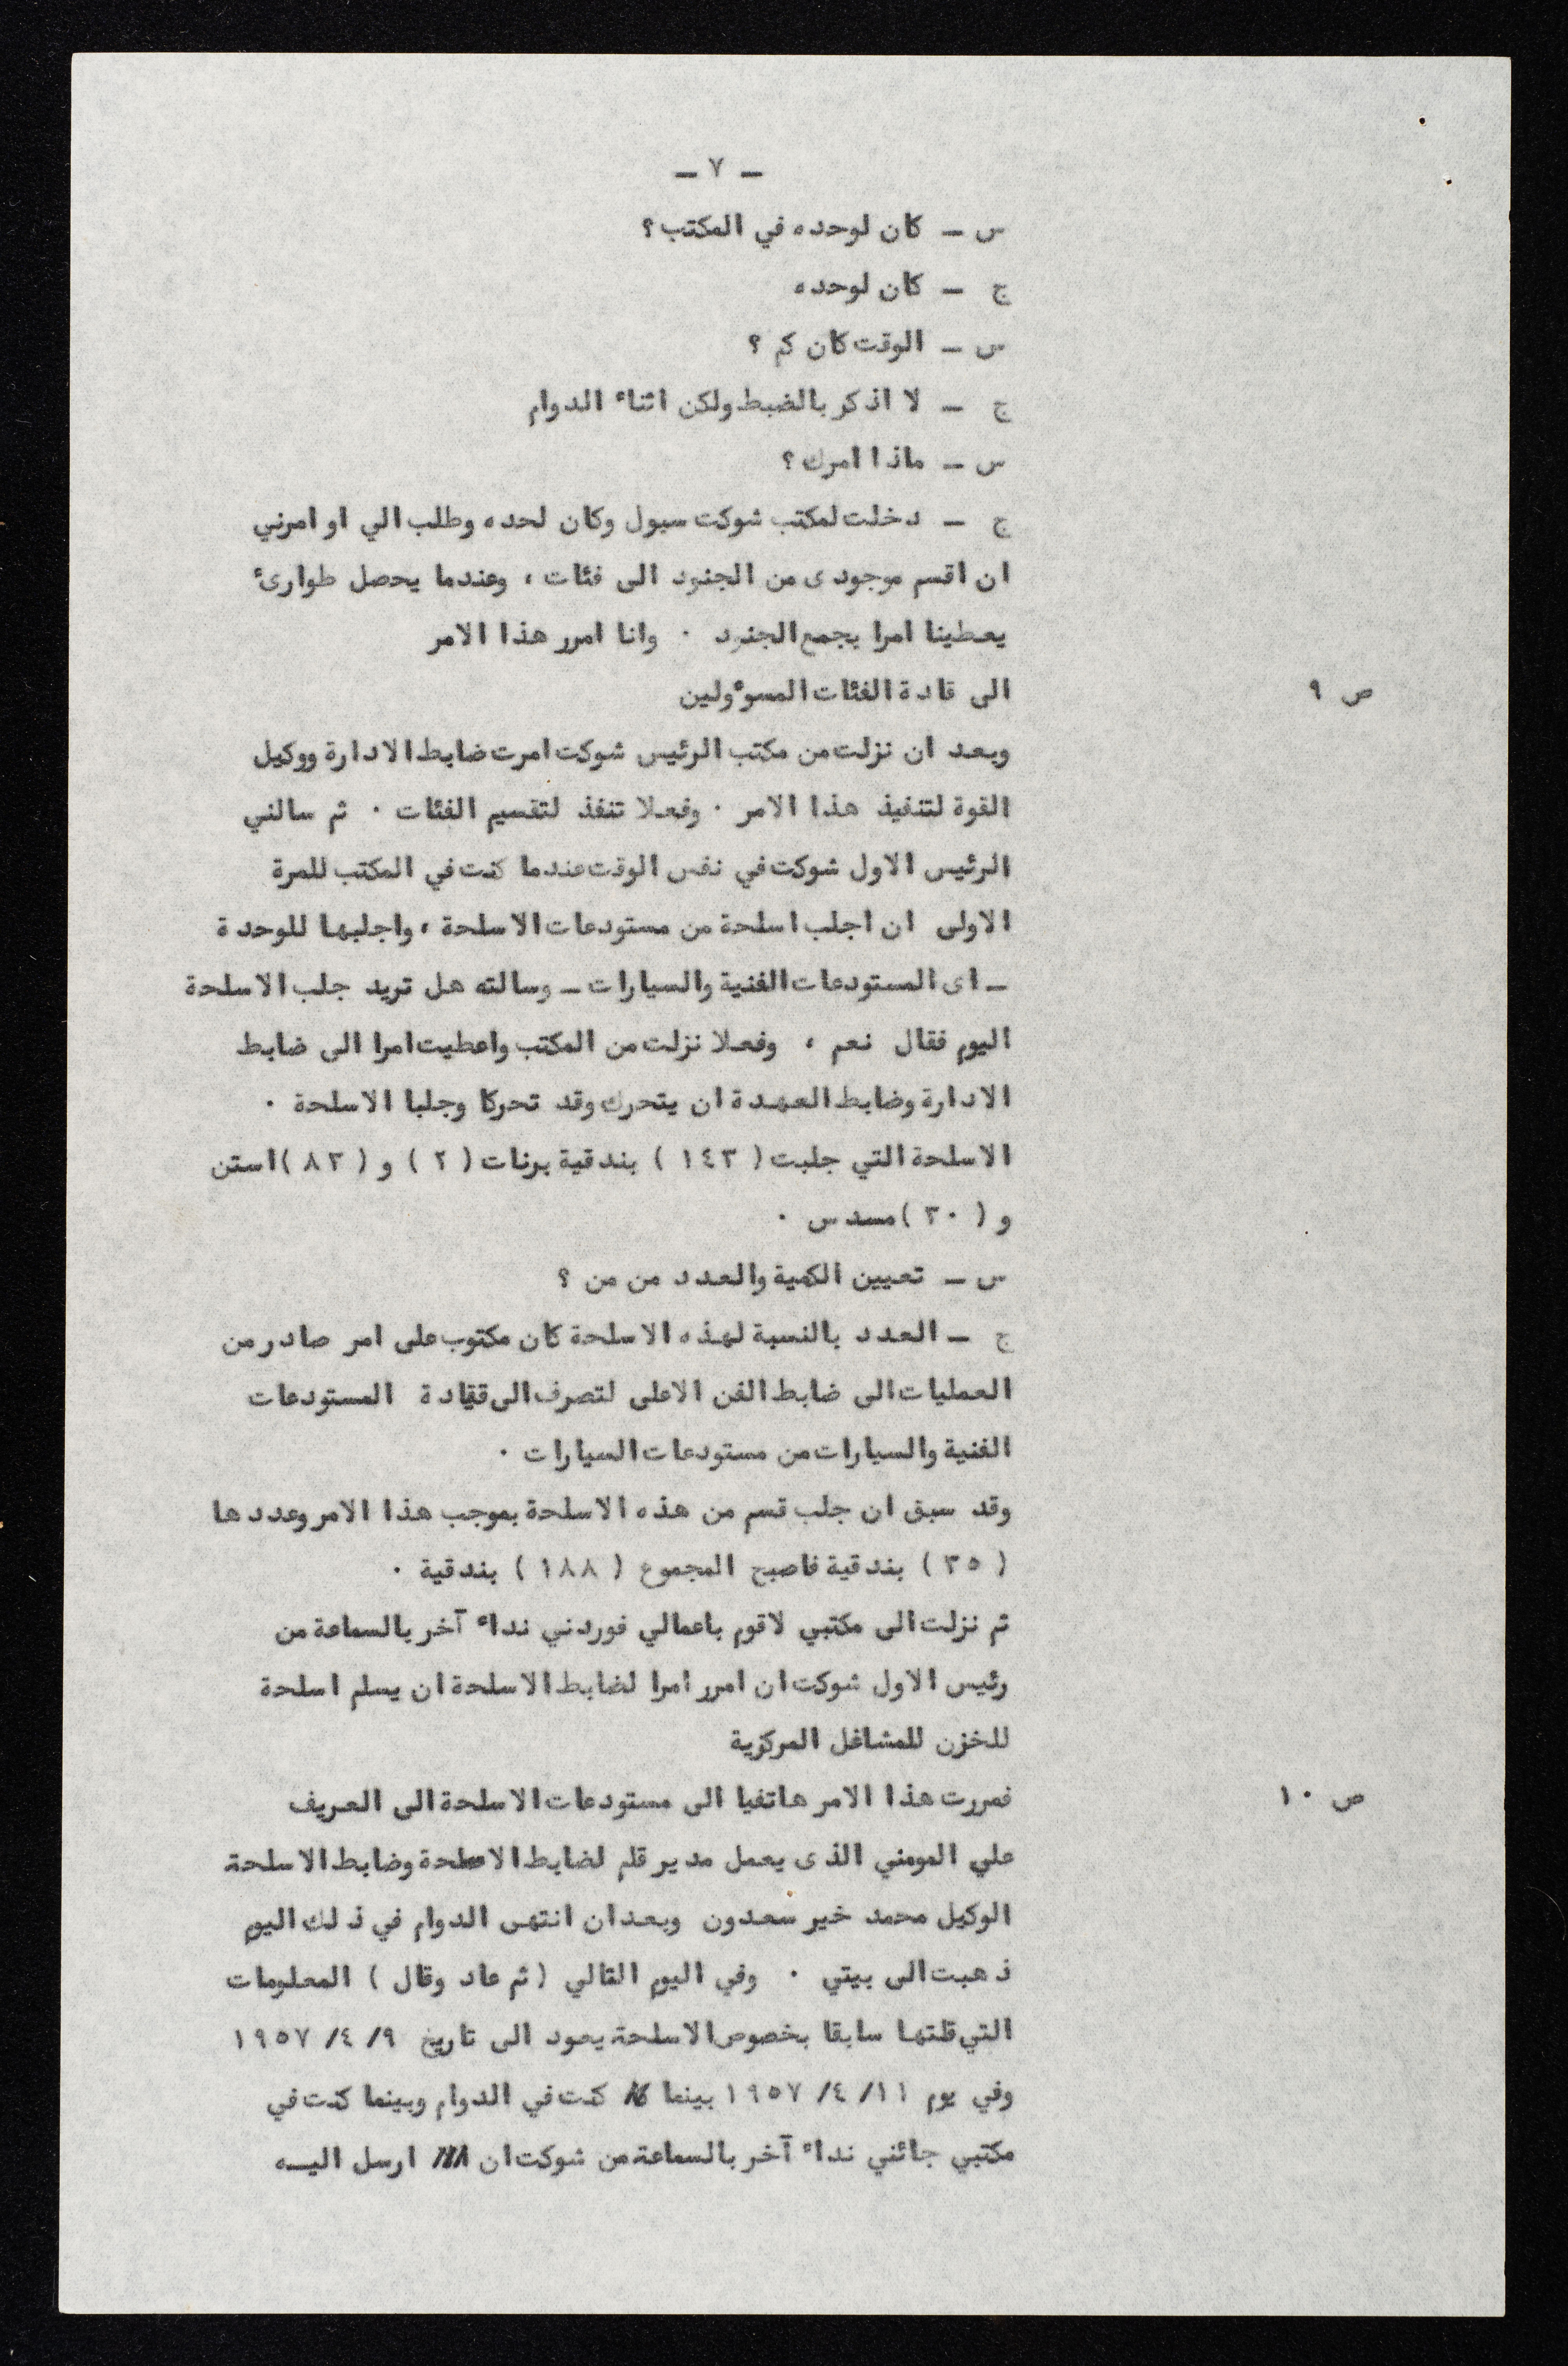 — ٧ —
س — كان لوحده في المكتب؟
ج — كان لوحده
س — الوقت كان كم ؟
ج — لا اذكر بالضبط ولكن اثناء الدوام
س — ماذا امرك؟
ج — دخلت لمكتب شوكت سبول وكان لحده وطلب الي او امرني
ان اقسم موجودى من الجنود الى فئات ، وعندما يحصل طوارىء
يعطينا امرا بجمع الجنود ٠ وانا امرر هذا الامر
ص ٩ الى قادة الفئات المسوءولين
وبعد ان نزلت من مكتب الرئيس شوكت امرت ضابط الادارة ووكيل
القوة لتنفيذ هذا الامر ٠ وفعلا تنفذ لتقسيم الفئات ٠ ثم سالني
الرئيس الاول شوكت في نفس الوقت عندما كنت في المكتب للمرة
الاولى ان اجلب اسلحة من مستودعات الاسلحة ، واجلبها للوحدة
— اى المستودعات الفنية والسيارات — وسالته هل تريد جلب الاسلحة
اليوم فقال نعم ، وفعلا نزلت من المكتب واعطيت امرا الى ضابط
الادارة وضابط العهدة ان يتحرك وقد تحركا وجلبا الاسلحة ٠
الاسلحة التي جلبت ( ١٤٣ ) بندقية برنات ( ٢ ) و ( ٨٣ ) استن
و ( ٣٠ ) مسدس ٠
س — تعيين الكمية والعدد من من ؟
ج — العدد بالنسبة لهذه الاسلحة كان مكتوب على امر صادر من
العمليات الى ضابط الفن الاعلى لتصرف الى ققيادة المستودعات
الفنية والسيارات من مستودعات السيارات ٠
وقد سبق ان جلب قسم من هذه الاسلحة بموجب هذا الامر وعددها
( ٣٥ ) بندقية فاصبح المجموع ( ١٨٨ ) بندقية ٠
ثم نزلت الى مكتبي لاقوم باعمالي فوردني نداء آخر بالسماعة من
رئيس الاول شوكت ان امرر امرا لضابط الاسلحة ان يسلم اسلحة
للخزن للمشاغل المركزية
ص ١٠ فمررت هذا الامر هاتفيا الى مستودعات الاسلحة الى العريف
علي المومني الذى يعمل مدير قلم لضابط الاسلحة وضابط الاسلحة
الوكيل محمد خير سعدون وبعد ان انتهى الدوام في ذلك اليوم
ذهبت الى بيتي ٠ وفي اليوم التالي ( ثم عاد وقال ) المعلومات
التي قلتها سابقا بخصوص الاسلحة يعود الى تاريخ ٩/ ٤/ ١٩٥٧
وفي يوم ١١/ ٤/ ١٩٥٧ بينما كنت في الدوام وبينما كنت في
مكتبي جائني نداء آخر بالسماعة من شوكت ان ارسل اليه